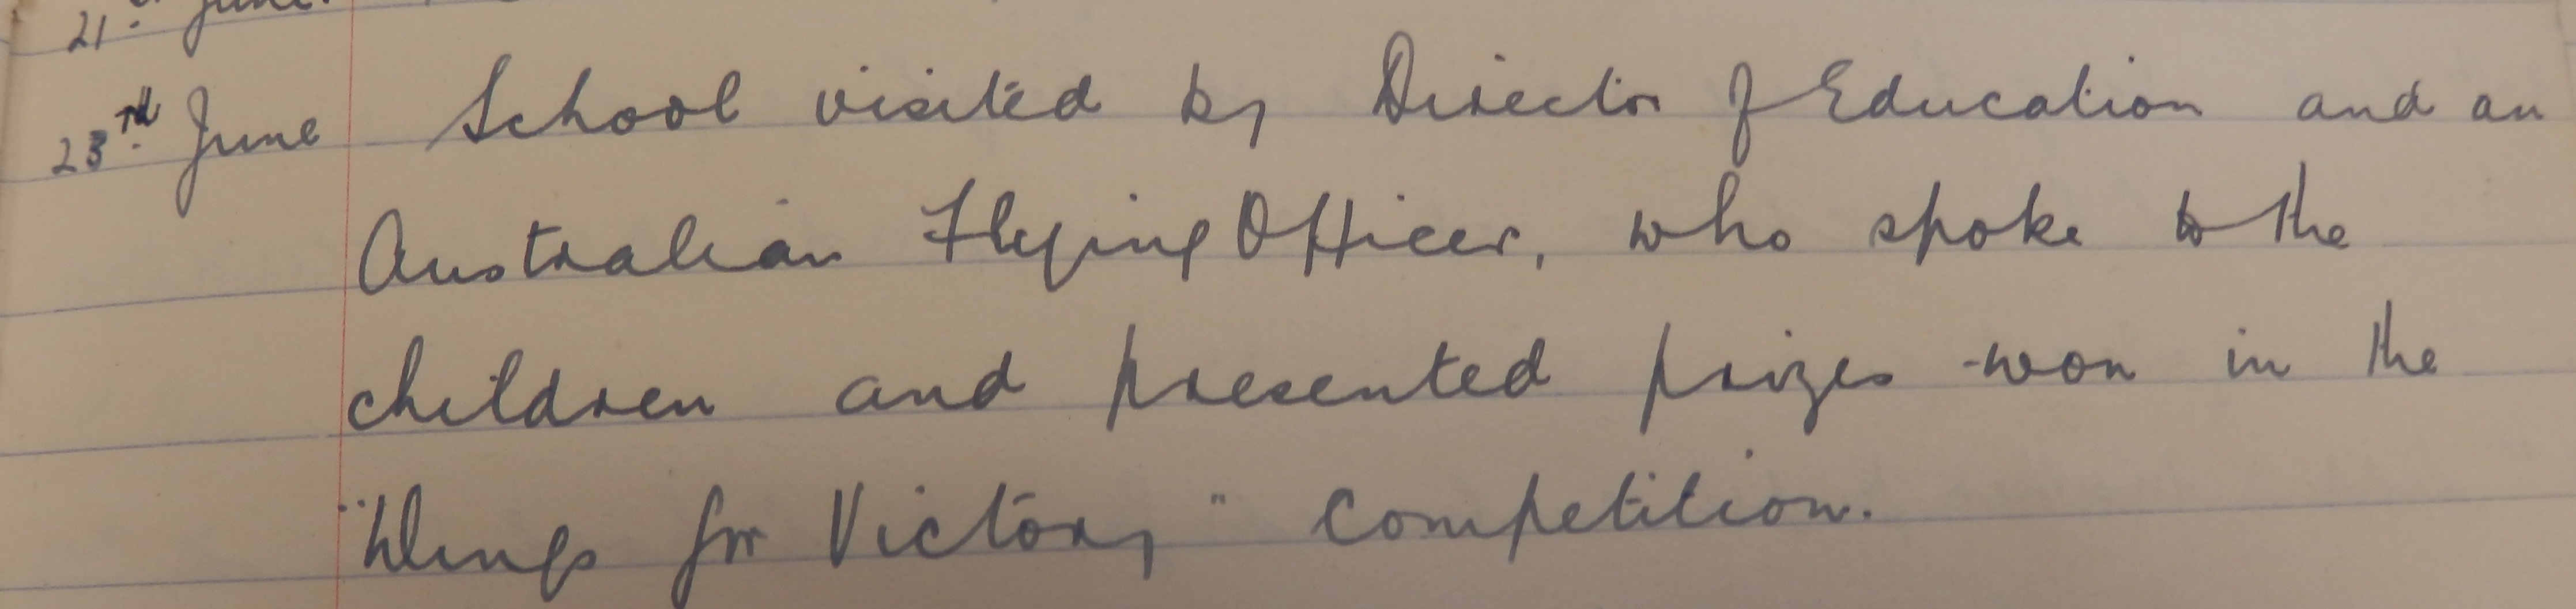 21st June
23.rd June School visited by Director of Education and an
Australian Flying Officer, who spoke to the
children and presented prizes won in the
"Wings for Victory" Competition.